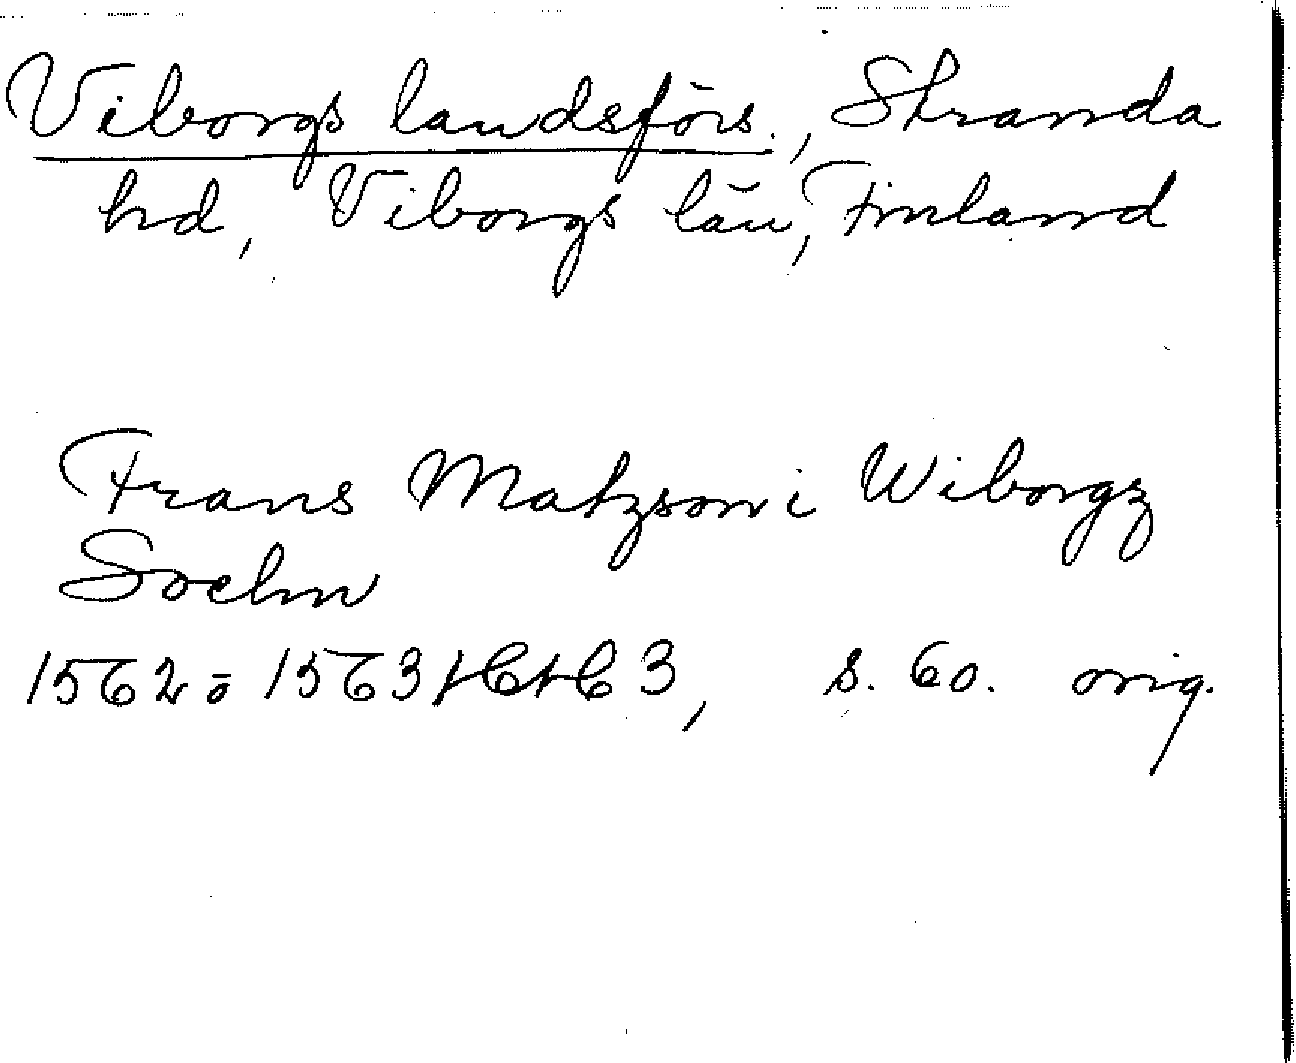 Viborgs landsförs., Stranda
hd, Viborgs län, Finland
Frans Matzson i Wiborgz
Sochn
1562 ō 1563 3, s. 60. orig.